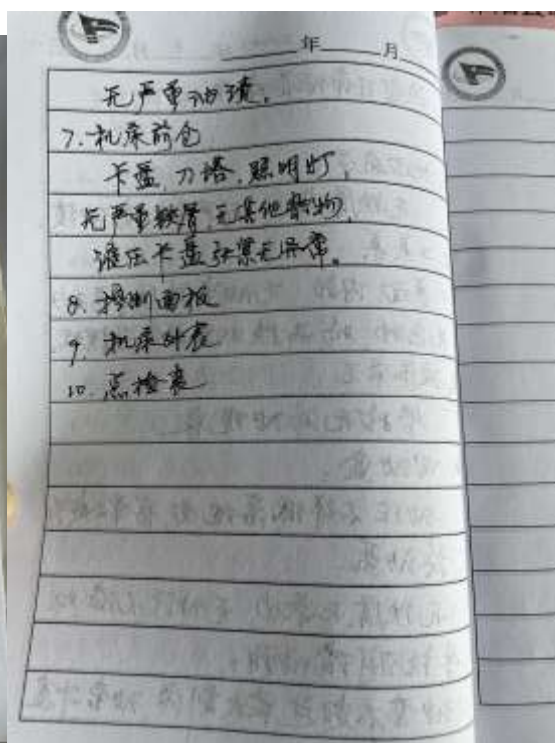 年 月
无严重油渍。
7. 机床前仓
卡盘，刀塔，照明灯，
无严重铁屑，无其他杂物，
液压卡盘张紧无异常。
8. 控制面板
9. 机床外表
10. 点检表